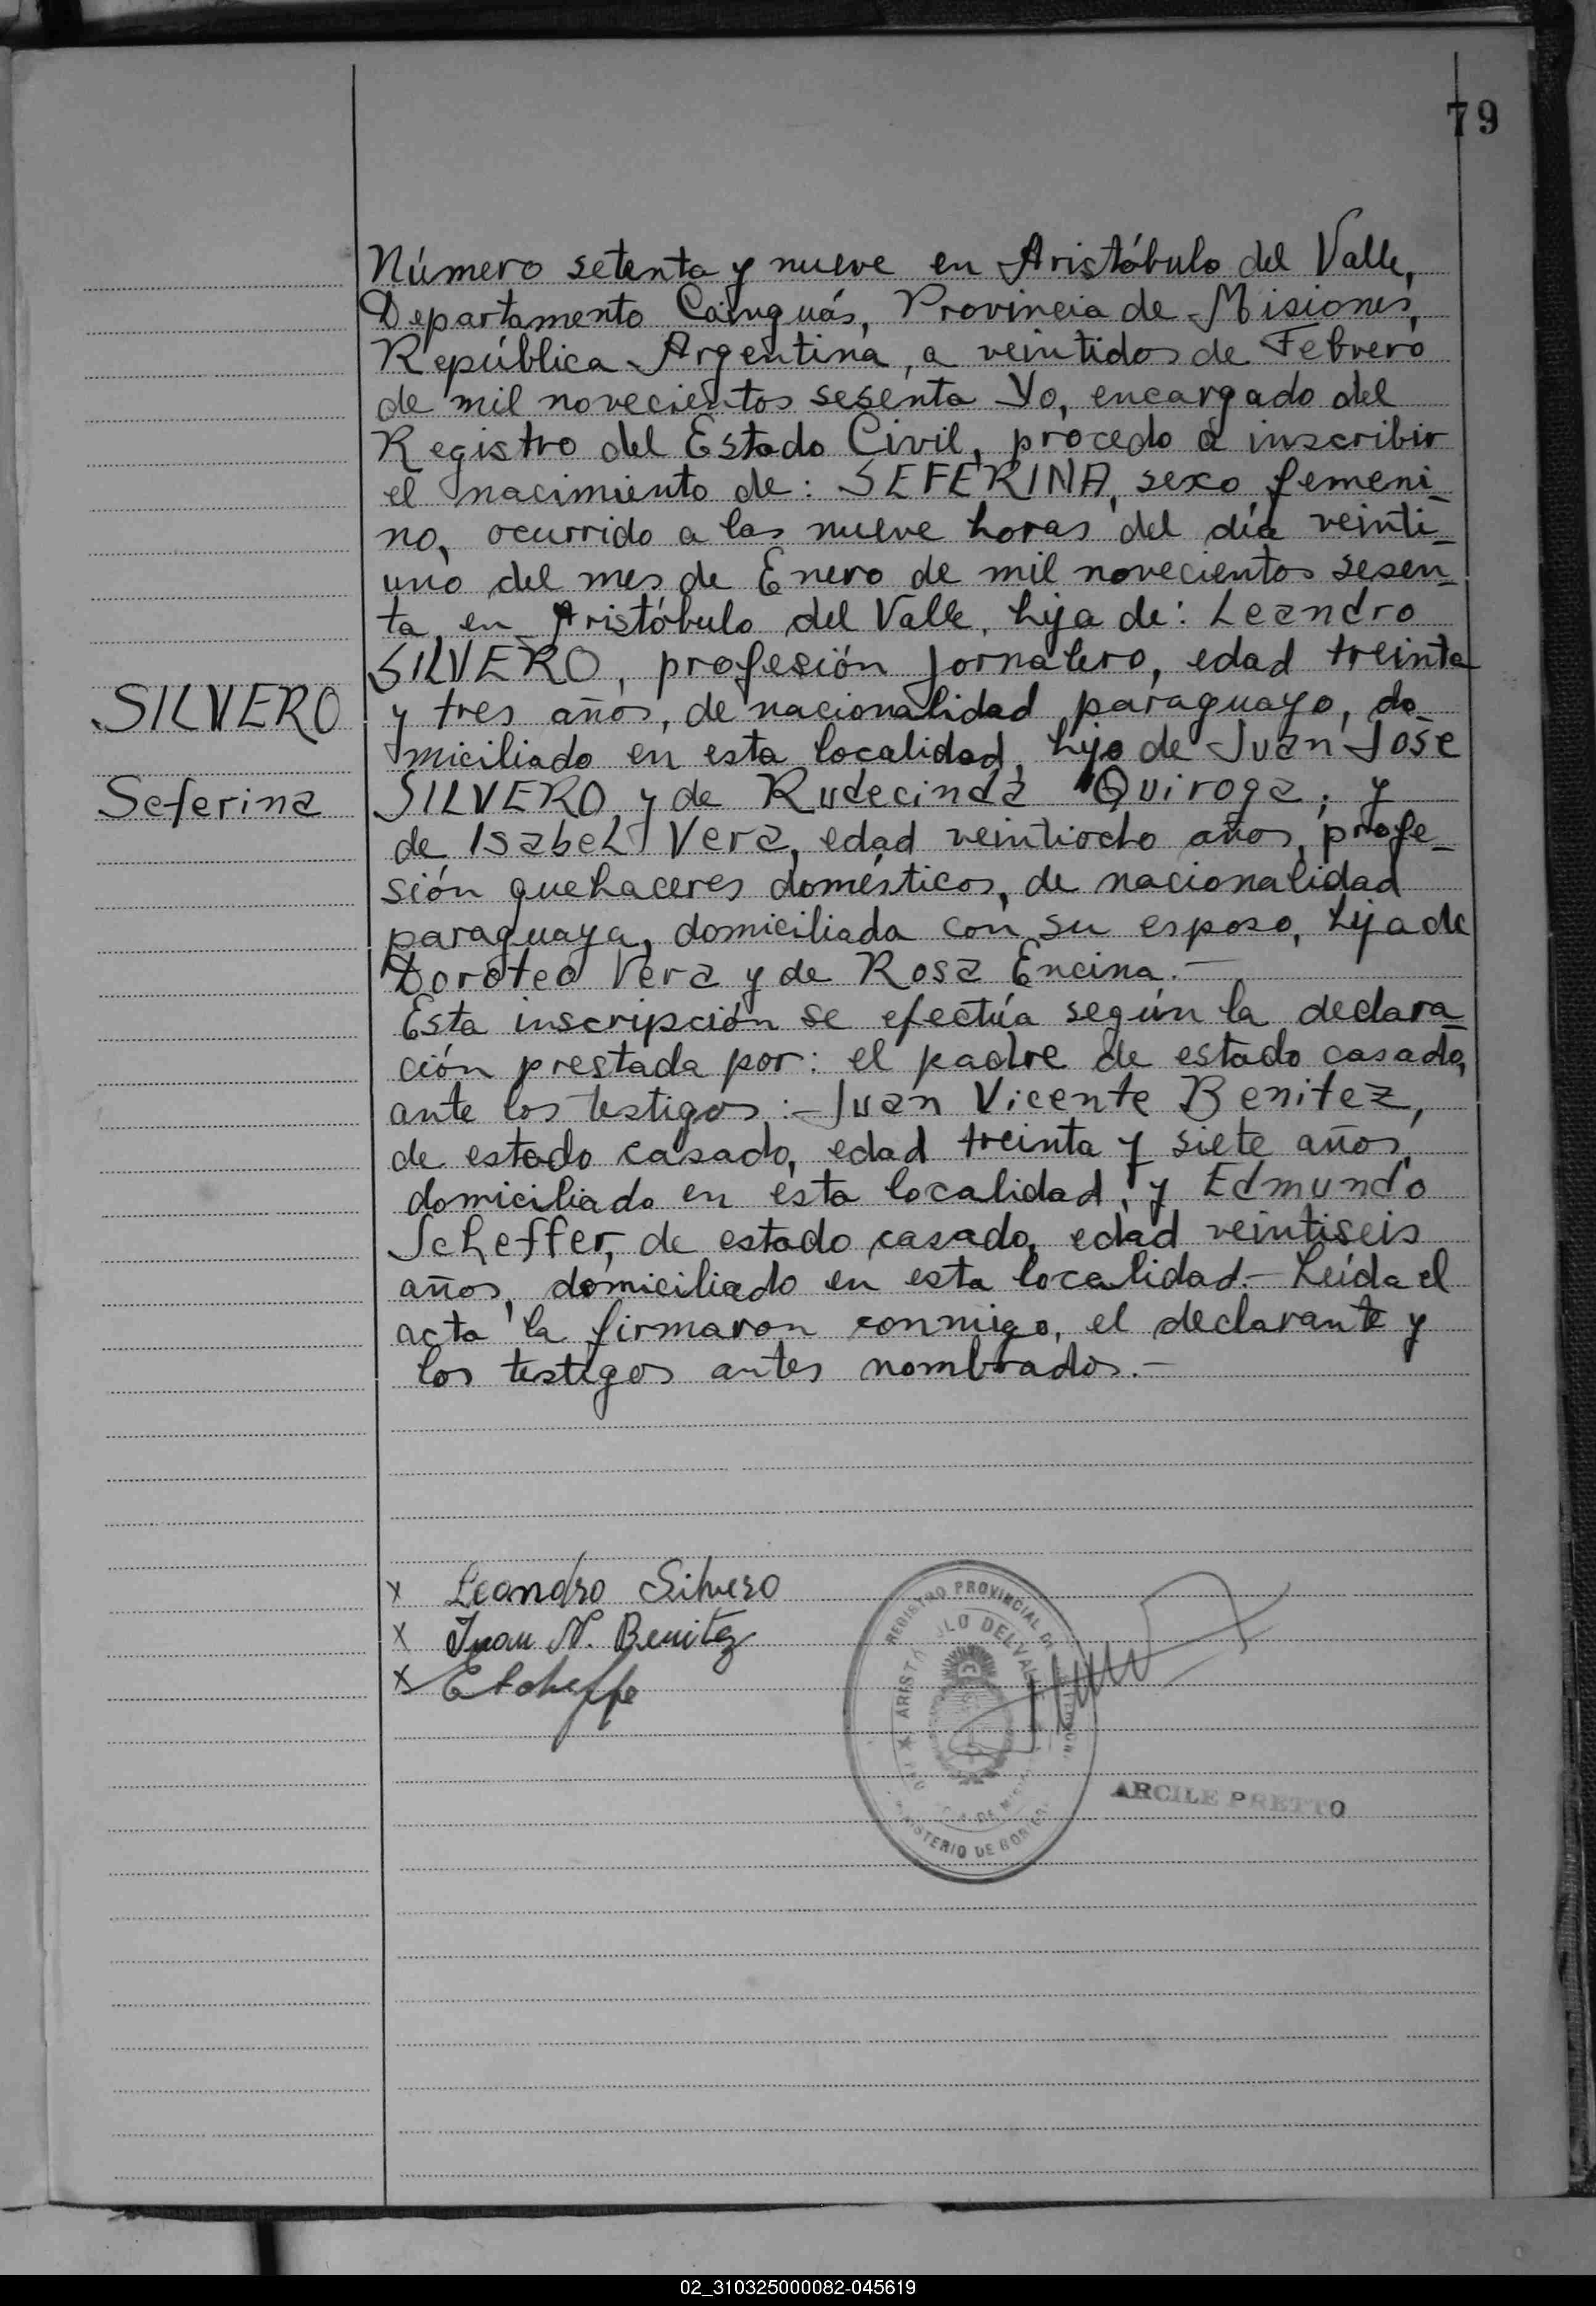 79
Número setenta y nueve en Aristóbulo del Valle,
Departamento Cainguás, Provincia de Misiones,
República Argentina, a veintidos de Febrero
de mil novecientos sesenta Yo, encargado del
Registro del Estado Civil, procedo a inscribir
el nacimiento de: SEFERINA, sexo femeni_
no, ocurrido a las nueve horas del día veinti_
uno del mes de Enero de mil novecientos sesen_
ta, en Aristóbulo del Valle, hija de: Leandro
SILVERO, profesión jornalero, edad treinta
SILVERO
y tres años, de nacionalidad paraguayo, do_
miciliado en esta localidad, hijo de Juan José
Seferina
SILVERO y de Rudecinda Quiroga; y
de Isabel Vera, edad veintiocho años, profe_
sión quehaceres domésticos, de nacionalidad
paraguaya, domiciliada con su esposo, hija de
Doroteo Vera y de Rosa Encina.—
Esta inscripción se efectúa según la declara_
ción prestada por: el padre de estado casado,
ante los testigos:— Juan Vicente Benitez,
de estado casado, edad treinta y siete años,
domiciliado en ésta localidad, y Edmundo
Scheffer, de estado casado, edad veintiseis
años, domiciliado en esta localidad.— Leída el
acta la firmaron conmigo, el declarante y
los testigos antes nombrados.—
x Leandro Silvero
x Juan V. Benitez
x
REGISTRO PROVINCIAL DE
DEL VALLE
MINISTERIO DE
ARCILE PRETTO
02_310325000082-045619